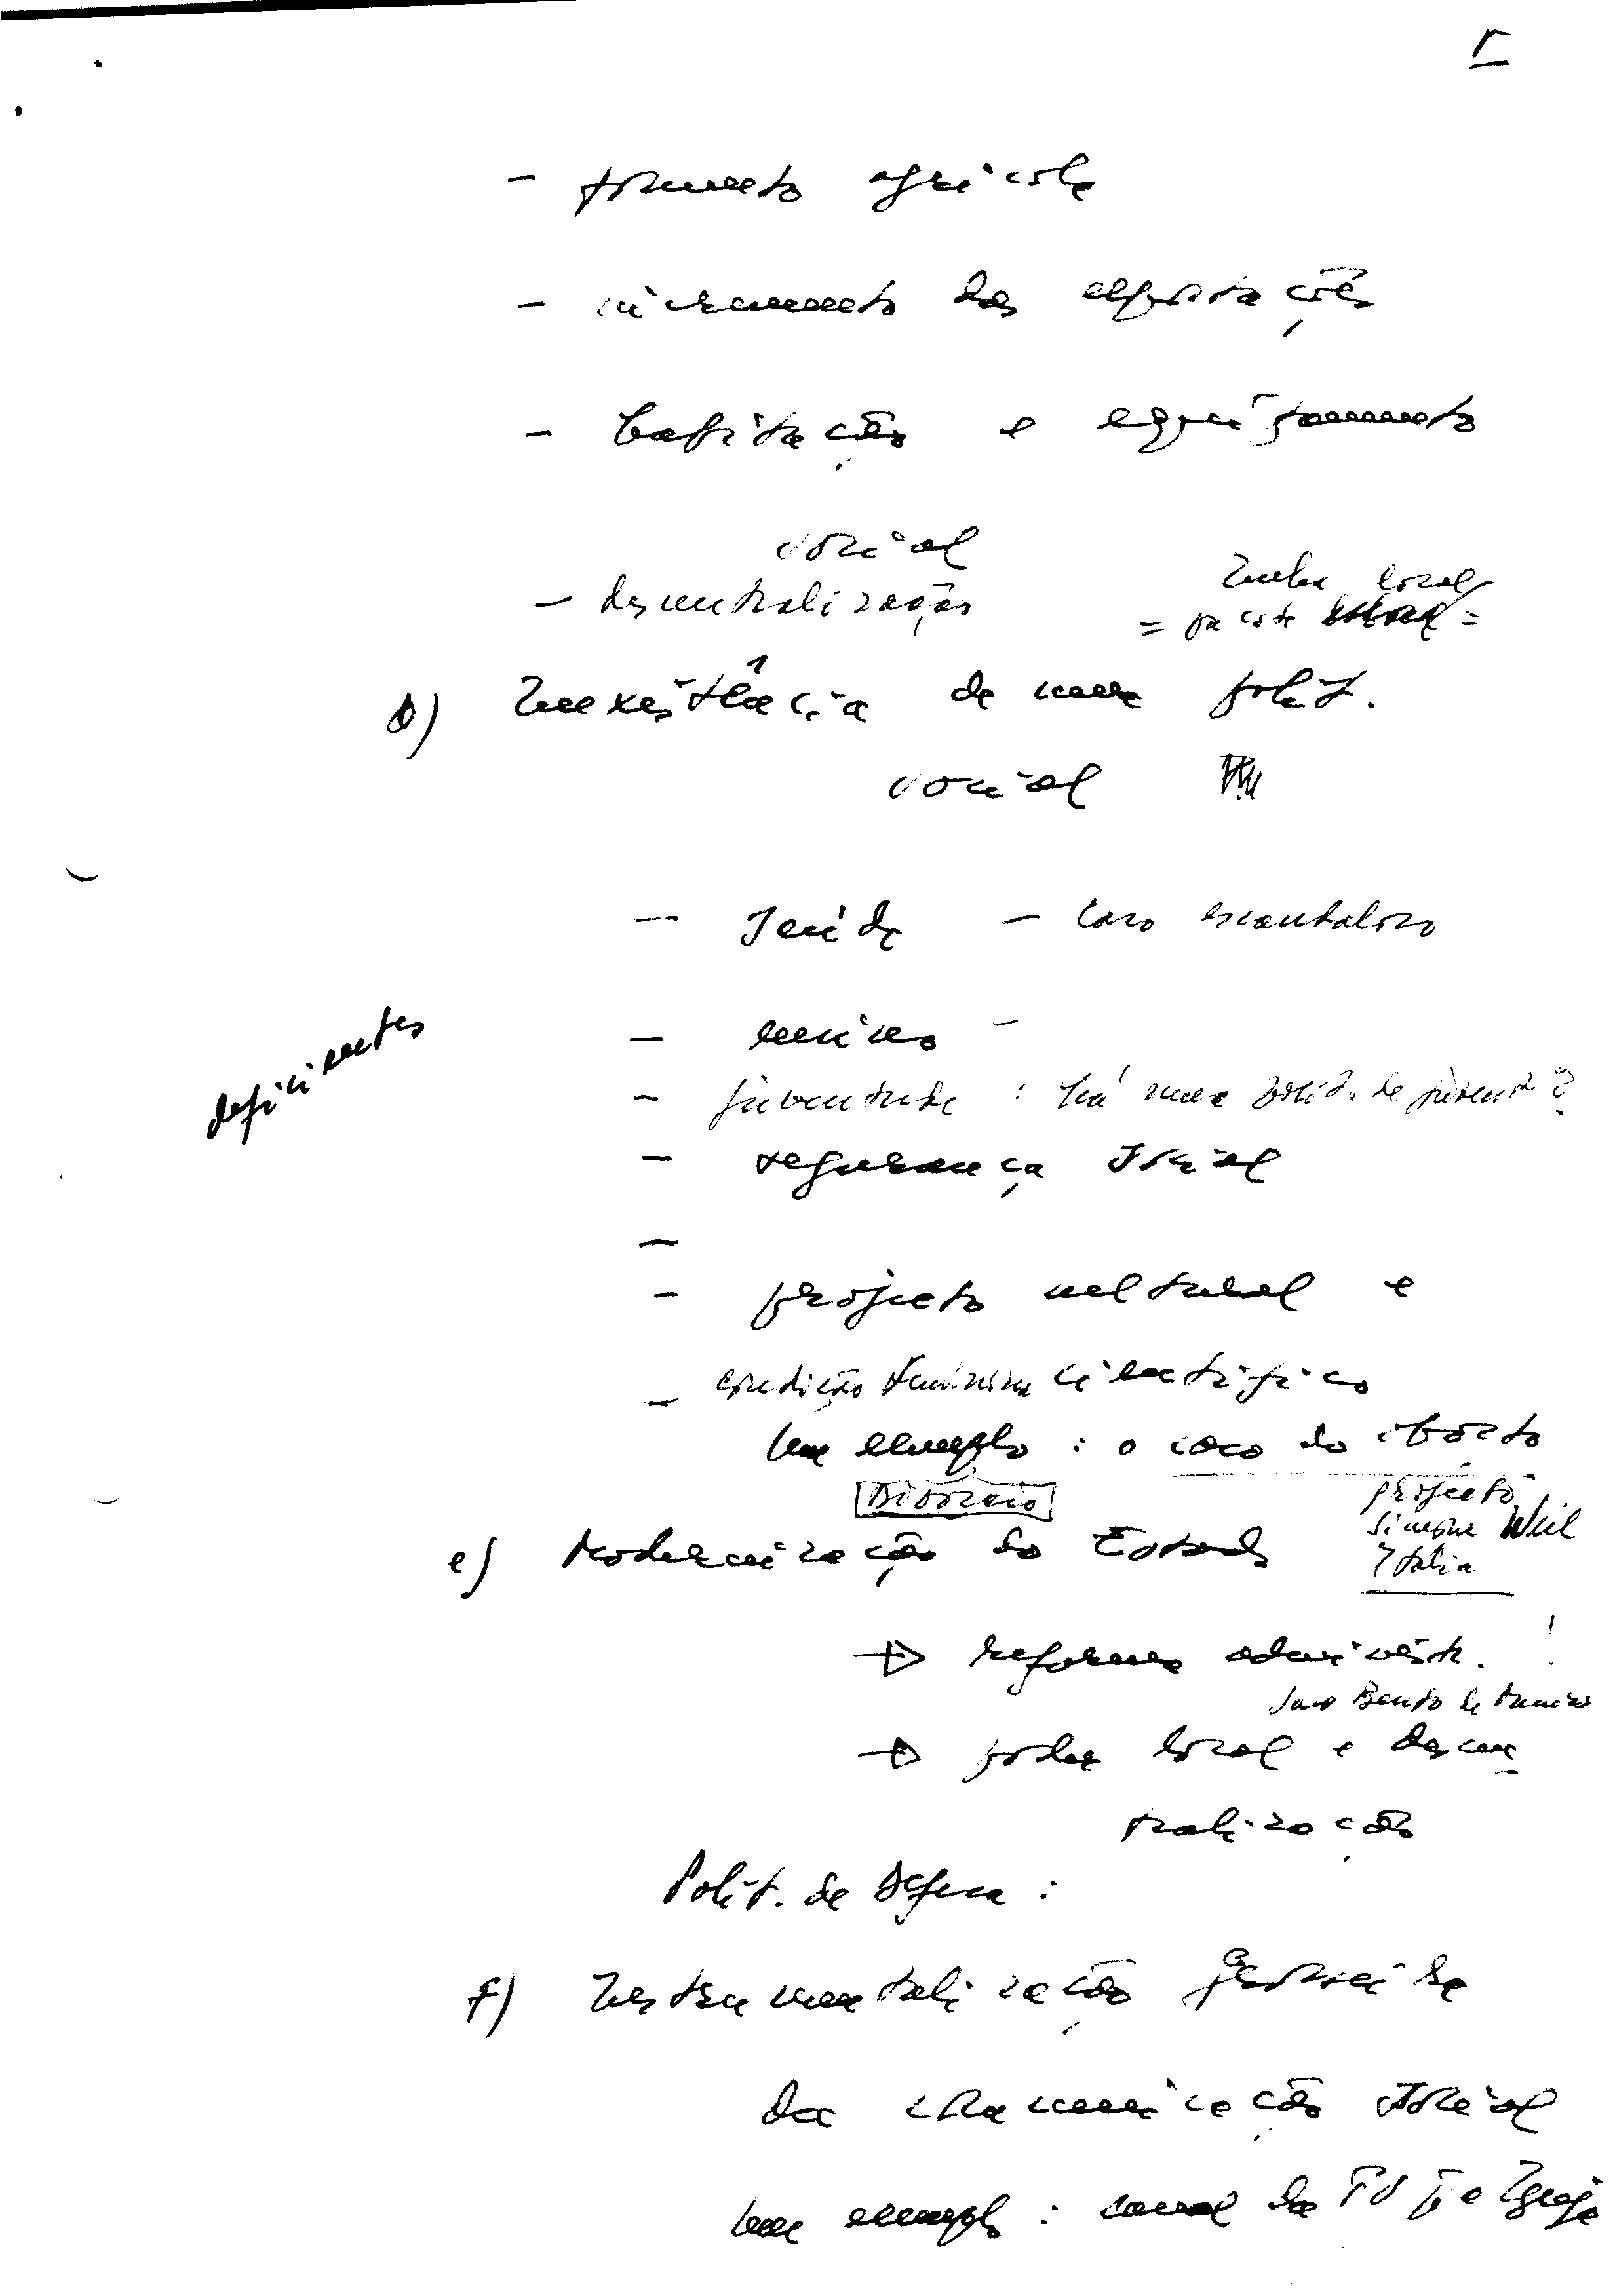 5
- fomento agrícola
- incremento das exportações
- habitação e equipamento
social
- descentralização
Poder local
= pacote =
d) Inexistência de uma polít.
social
- Saúde - caso escandaloso
- ensino -
deficientes
- juventude : há uma polít. de juvent.?
- segurança social
-
- projecto cultural e
científico
- condição feminina
um exemplo : o caso do aborto
Divórcio
projecto
Simone Weil
Itália
e) Modernização do Estado
→ reforma administ. !
→ poder local e descen
tralização
Polít. de Defesa :
f) Instrumentalização grosseira
da comunicação social
um exemplo : canal da TV p. a Igreja